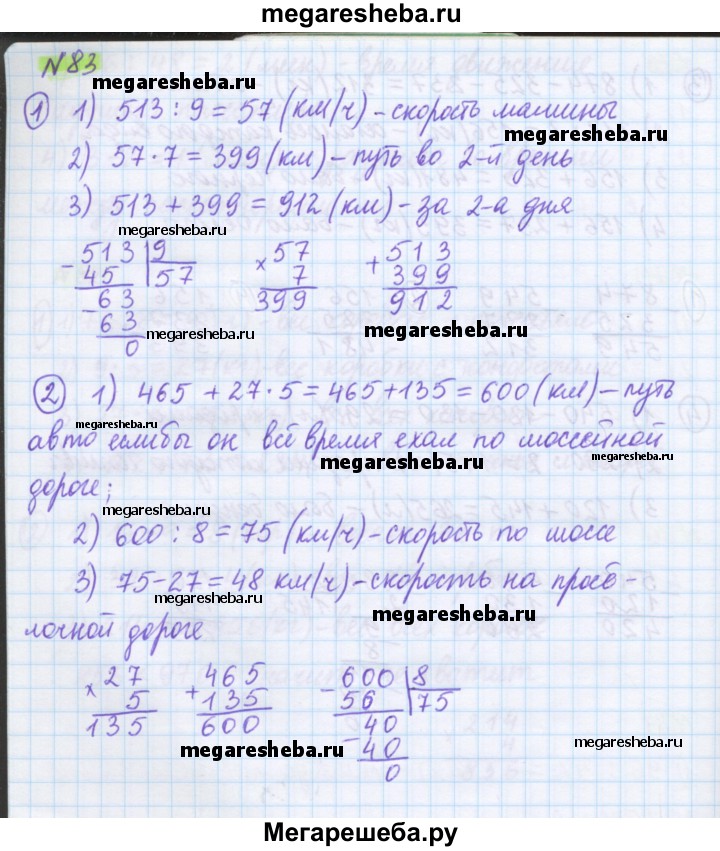 megaresheba.ru
N 83
megaresheba.ru
① 1) 513 : 9 = 57 (км/ч) - скорость машины
megaresheba.ru
2) 57 · 7 = 399 (км) - путь во 2-й день
3) 513 + 399 = 912 (км) - за 2-а дня
megaresheba.ru
513 | 9
- 45 | 57
- 63
63
0
57
× 7
399
513
+ 399
912
megaresheba.ru
megaresheba.ru
② 1) 465 + 27 · 5 = 465 + 135 = 600 (км) - путь
авто еслибы он всё время ехал по шоссейной
megaresheba.ru
megaresheba.ru
дороге;
2) 600 : 8 = 75 (км/ч) - скорость по шоссе
3) 75 - 27 = 48 км/ч) - скорость на просё -
megaresheba.ru
megaresheba.ru
лочной дороге
27
× 5
135
465
+ 135
600
600 | 8
- 56 | 75
40
- 40
0
megaresheba.ru
megaresheba.ru
Мегарешеба.ру